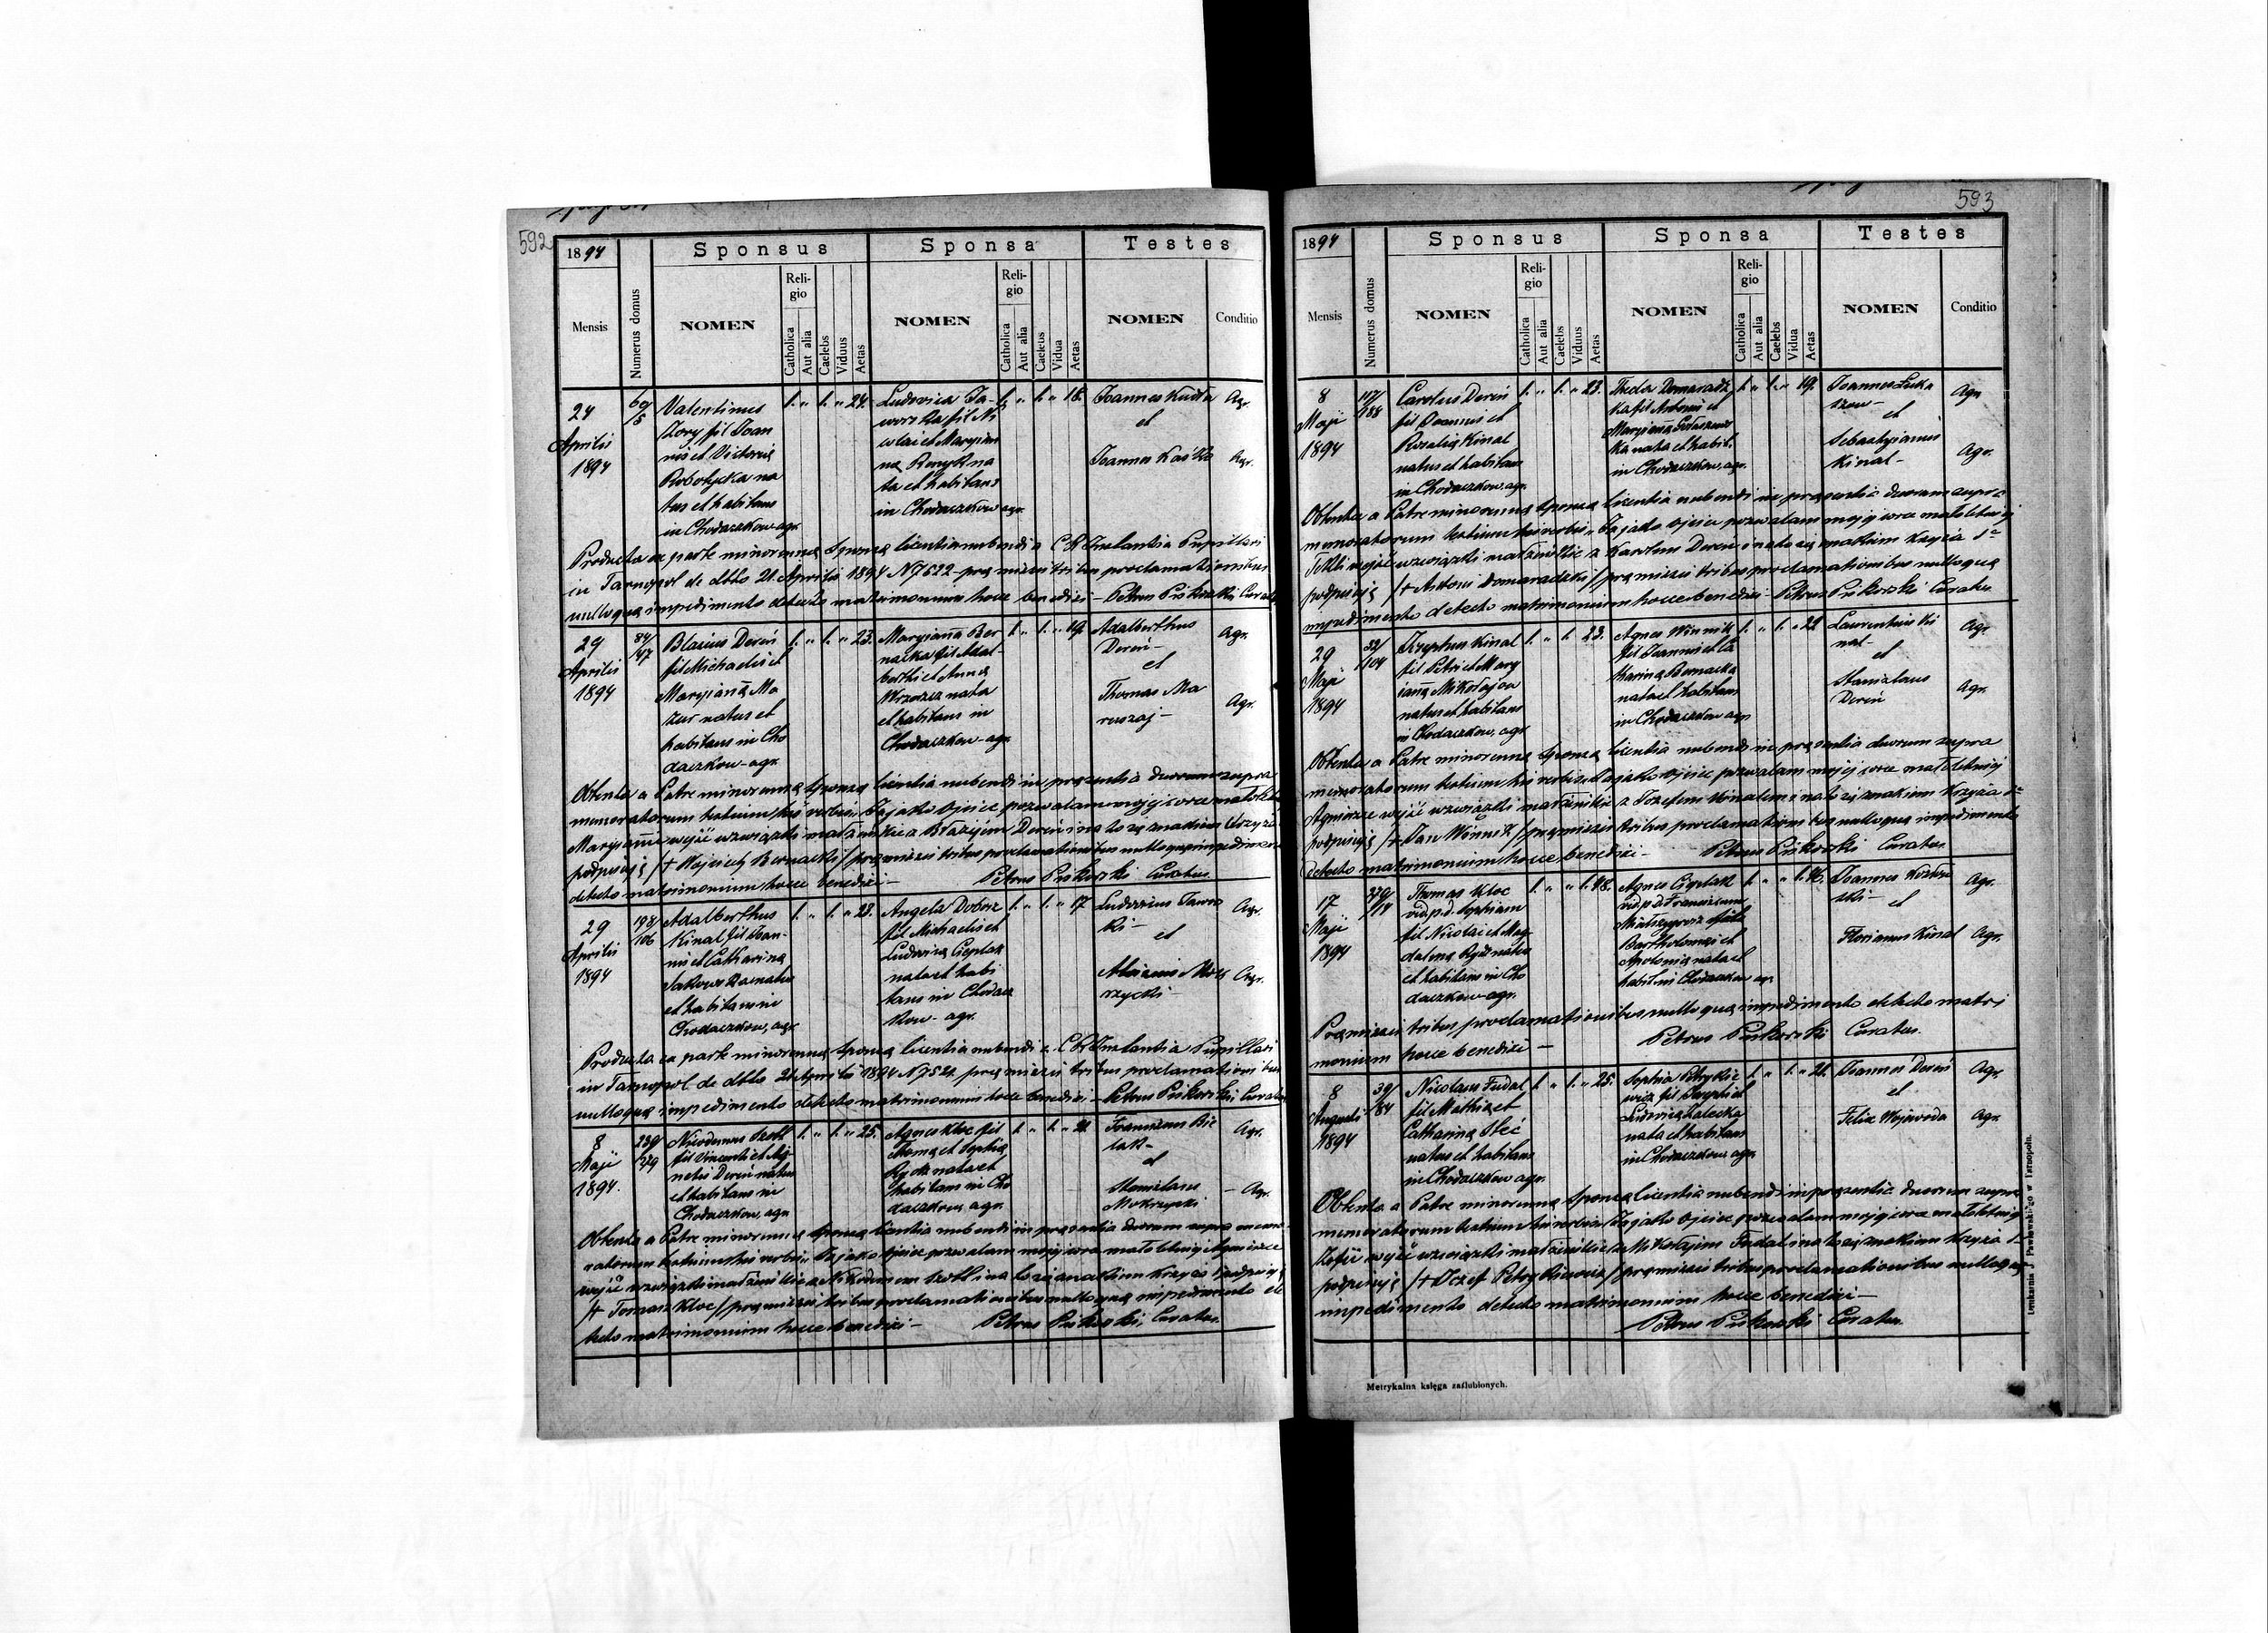 592
1894
Sponsus
Sponsa
Testes
Mensis
Numerus domus
NOMEN
Religio
Catholica
Aut alia
Caelebs
Viduus
Aetas
NOMEN
Religio
Catholica
Aut alia
Caelebs
Vidua
Aetas
NOMEN
Conditio
24
Aprilis
1894
60/5
Valentinus
Zory fil Joan
nis et Victoria
Robotycka na
tus et habitans
in Chodaczkow agr.
1. " 1. " 24.
Ludovica Ja-
worska fil Ni
colai et Maryian
na
na
ta et habitans
in Chodaczkow agr.
1. " 1. " 18.
Joannes Kudła
et
Joannes Kaśko
Agr.
Agr.
Producta ex parte minorennę sponsę licentia nubendi a C R Instantia Pupillari
in Tarnopol de dtto 21 Aprilis 1894 N 7522 pręmissis tribus proclamationibus
nulloque impedimento detecto matrimonium hocce benedixi - Petrus Piskorski Curatus
29
Aprilis
1894
84/47
Blasius Dereń
fil Michaelis et
Maryianna Ma
zur natus et
habitans in Cho
daczkow - agr.
1. " 1. " 23.
Maryianna Ber
nacka fil Adal-
berthi et Anna
nata
et habitans in
Chodaczkow - agr.
1. " 1. " 19.
Adalberthus
Dereń -
et
Thomas Ma
ruszaj -
Agr.
Agr.
Obtenta a Patre minorennę sponsę licentia nubendi in pręsentia duorum supra
memoratorum testium his verbis: Ja jako ojciec pozwalam mojej córce małoletniej
Maryiannie wejść w związki małżeńskie z Błażejem Dereń i na to się znakiem krzyża
podpisuję /+ Wojciech Bernacki/ pręmissis tribus proclamationibus nulloque impedimento
detecto matrimonium hocce benedixi - Petrus Piskorski Curatus
29
Aprilis
1894
198/106
Adalberthus
Kinal fil Joan-
nis et Catharina
natus
et habitans in
Chodaczkow, agr.
1. " 1. " 23.
Angela Dobosz
fil Michaelis et
Ludovica Cieplak
nata et habi
tans in Chodacz
kow - agr.
1. " 1. " 17
Ludovicus Jawor
ski -
et
Agr.
Agr.
Producta ex parte minorennę sponsę licentia nubendi a C R Instantia Pupillari
in Tarnopol de dtto 21 Aprilis 1894 N 7521 pręmissis tribus proclamationibus
nulloque impedimento detecto matrimonium hocce benedixi - Petrus Piskorski Curatus
8
Maji
1894.
Nicodemus Szott
fil Vincentii et Ag-
netis Dereń natus
et habitans in
Chodaczkow, agr.
1. " 1. " 25.
Agnes Kloc fil
Thomę et Sophię
nata et
habitans in Cho
daczkow, agr.
1. " 1. " 21
Franciscus Bie
lak -
et
Stanislaus
Mokrzycki
Agr.
- Agr.
Obtenta a Patre minorennę sponsę licentia nubendi in pręsentia duorum supra memo-
ratorum testium his verbis: Ja jako ojciec pozwalam mojej córce małoletniej Agnieszce
wejść w związki małżeńskie z Nikodemem Szott i na to się znakiem krzyża podpisuję
/+ Tomasz Kloc/ pręmissis tribus proclamationibus nulloque impedimento de
tecto matrimonium hocce benedixi - Petrus Piskorski, Curatus.
593
1894
Sponsus
Sponsa
Testes
Mensis
Numerus domus
NOMEN
Religio
Catholica
Aut alia
Caelebs
Viduus
Aetas
NOMEN
Religio
Catholica
Aut alia
Caelebs
Vidua
Aetas
NOMEN
Conditio
8
Maji
1894
117/188
Carolus Dereń
fil Joannis et
Rosalia Kinal
natus et habitans
in Chodaczkow, agr.
1. " 1. " 23.
Thecla Domaradz
ka fil Antonii et
Maryiana
ka nata et habit.
in Chodaczkow, agr.
1. " 1. " 19.
Joannes Luka
szow -
et
Sebastyianus
Kinal -
Agr.
Agr.
Obtenta a Patre minorennę sponsę licentia nubendi in pręsentia duorum supra
memoratorum testium his verbis: Ja jako ojciec pozwalam mojej córce małoletniej
Tekli wejść w związki małżeńskie z Karolem Dereń i na to się znakiem krzyża św
podpisuję /+ Antoni Domaradzki/ pręmissis tribus proclamationibus nulloque
impedimento detecto matrimonium hocce benedixi Petrus Piskorski Curatus
29
Maji
1894
32/104
Josephus Kinal
fil Petri et Mary
ianna Mikołajów
natus et habitans
in Chodaczkow, agr.
1. " 1. 23.
Agnes Winnik
fil Joannis et Ca
tharina Bernacka
nata et habitans
in Chodaczkow agr.
1. " 1. " 22
Laurentius Ki
nal -
et
Stanislaus
Dereń
Agr.
Agr.
Obtenta a Patre minorennę sponsę licentia nubendi in pręsentia duorum supra
memoratorum testium his verbis: Ja jako ojciec pozwalam mojej córce małoletniej
Agnieszce wejść w związki małżeńskie z Józefem Kinalem i na to się znakiem krzyża św
podpisuję /+ Jan Winnik/ pręmissis tribus proclamationibus nulloque impedimento
detecto matrimonium hocce benedixi - Petrus Piskorski Curatus
17
Maji
1894
Thomas Kloc
vid. p. d. Sophiam
fil Nicolai et Mag
dalena natus
et habitans in Cho
daczkow - agr.
1. " " 1. 48.
Agnes Cieplak
vid p. d. Franciscum
Bartholomęi et
Apolonia nata et
habit. in Chodaczkow agr.
1. " " 1. 46.
Joannes
ski -
et
Florianus Kinal
Agr.
Agr.
Pręmissis tribus proclamationibus nulloque impedimento detecto matri
monium hocce benedixi - Petrus Piskorski Curatus.
8
Augusti
1894
39/84
Nicolaus Fudal
fil Mathia et
Catharina Steć
natus et habitans
in Chodaczkow agr.
1. " 1. " 25.
Sophia Petrykie
wicz fil Josephi et
Ludovica Zalecka
nata et habitans
in Chodaczkow agr.
1. " 1. " 21.
Joannes Dereń
et
Felix Wojewoda
Agr.
Agr.
Obtenta a Patre minorennę sponsę licentia nubendi in pręsentia duorum supra
memoratorum testium his verbis /Ja jako ojciec pozwalam mojej córce małoletniej
Zofii wejść w związki małżeńskie z Mikołajem Fudal i na to się znakiem krzyża ś
podpisuję /+ Józef Petrykiewicz/ pręmissis tribus proclamationibus nulloque
impedimento detecto matrimonium hocce benedixi -
Petrus Piskorski Curatus.
Metrykalna księga zaślubionych.
Drukarnia J. Pawłowskiego w Tarnopolu.